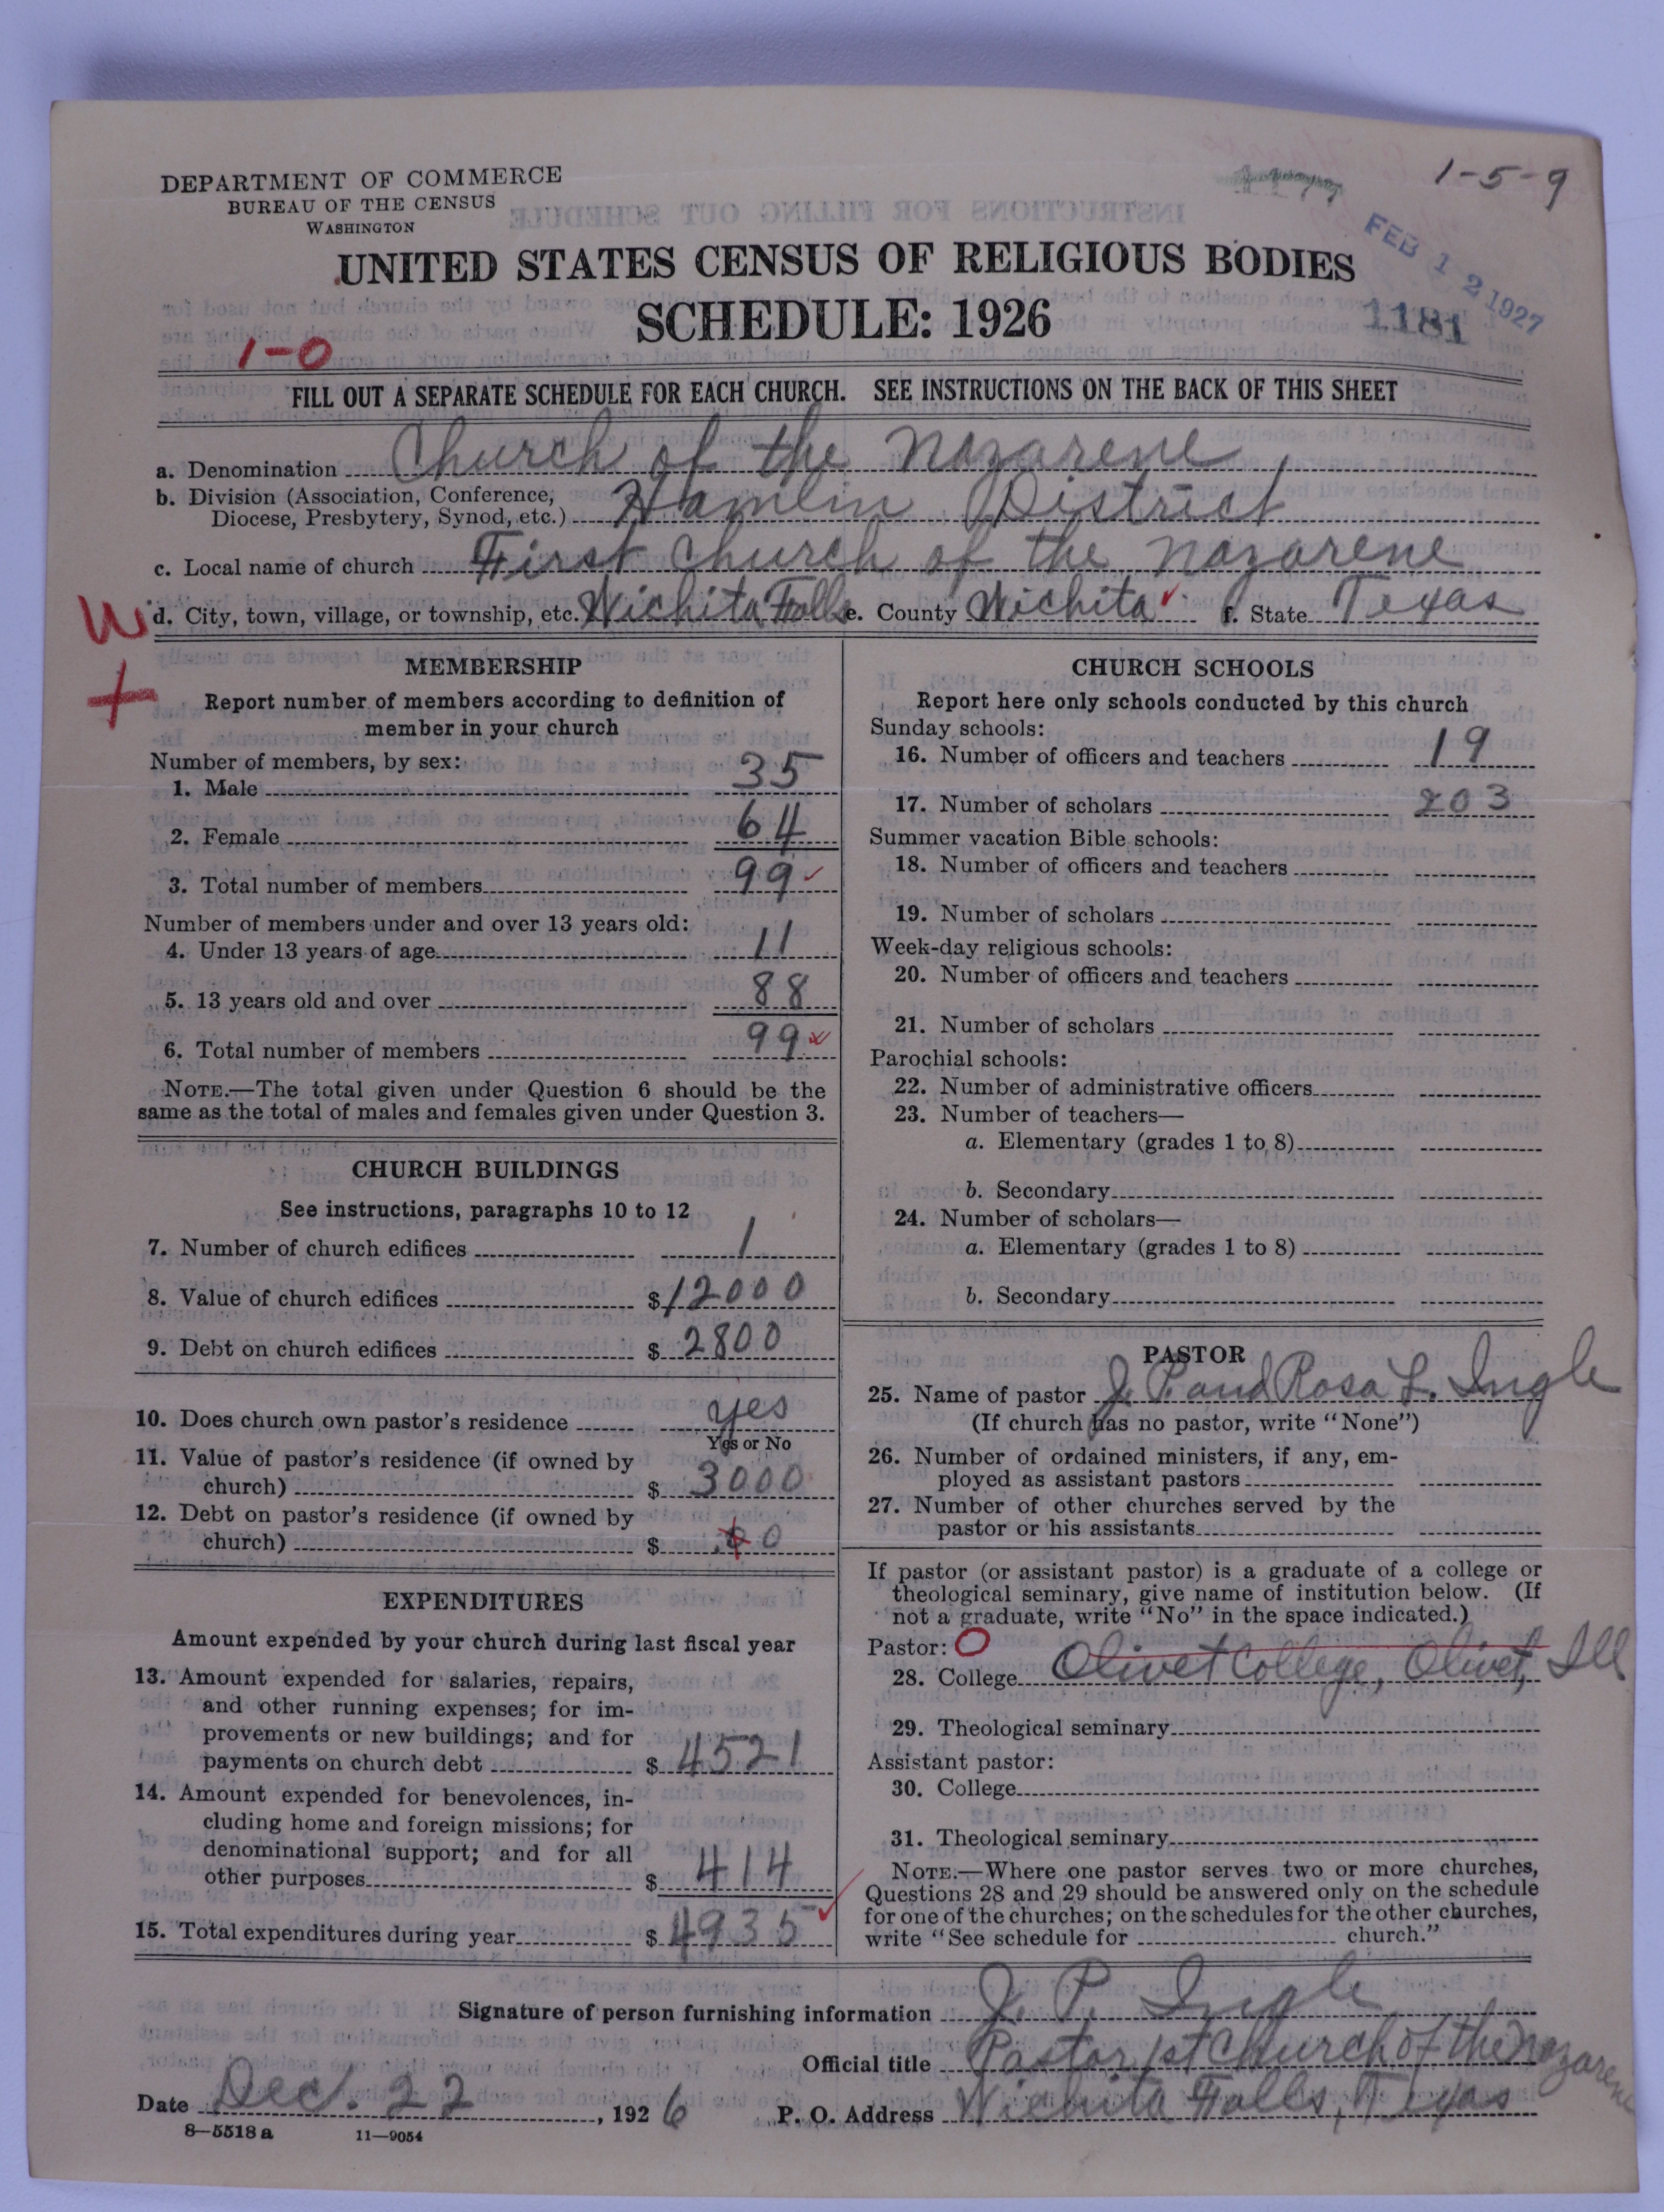 1-5-9
DEPARTMENT OF COMMERCE
BUREAU OF THE CENSUS
WASHINGTON
FEB 12 1927
UNITED STATES CENSUS OF RELIGIOUS BODIES
SCHEDULE: 1926
1181
1-0
FILL OUT A SEPARATE SCHEDULE FOR EACH CHURCH. SEE INSTRUCTIONS ON THE BACK OF THIS SHEET
a. Denomination Church of the Nazarene
b. Division (Association, Conference, Diocese, Presbytery, Synod, etc.) Hamlin District
c. Local name of church First Church of the Nazarene
W d. City, town, village, or township, etc. Wichita Falls e. County Wichita ✓ f. State Texas
+
MEMBERSHIP
Report number of members according to definition of
member in your church
Number of members, by sex:
1. Male 35
2. Female 64
3. Total number of members 99 ✓
Number of members under and over 13 years old:
4. Under 13 years of age 11
5. 13 years old and over 88
6. Total number of members 99
NOTE.—The total given under Question 6 should be the
same as the total of males and females given under Question 3.
CHURCH BUILDINGS
See instructions, paragraphs 10 to 12
7. Number of church edifices 1
8. Value of church edifices $ 12000
9. Debt on church edifices $ 2800
10. Does church own pastor's residence yes
Yes or No
11. Value of pastor's residence (if owned by
church) $ 3000
12. Debt on pastor's residence (if owned by
church) $ 0
EXPENDITURES
Amount expended by your church during last fiscal year
13. Amount expended for salaries, repairs,
and other running expenses; for im-
provements or new buildings; and for
payments on church debt $ 4521
14. Amount expended for benevolences, in-
cluding home and foreign missions; for
denominational support; and for all
other purposes $ 414
15. Total expenditures during year $ 4935 ✓
CHURCH SCHOOLS
Report here only schools conducted by this church
Sunday schools:
16. Number of officers and teachers 19
17. Number of scholars 203
Summer vacation Bible schools:
18. Number of officers and teachers
19. Number of scholars
Week-day religious schools:
20. Number of officers and teachers
21. Number of scholars
Parochial schools:
22. Number of administrative officers
23. Number of teachers—
a. Elementary (grades 1 to 8)
b. Secondary
24. Number of scholars—
a. Elementary (grades 1 to 8)
b. Secondary
PASTOR
25. Name of pastor J. P. and Rosa L. Ingle
(If church has no pastor, write "None")
26. Number of ordained ministers, if any, em-
ployed as assistant pastors
27. Number of other churches served by the
pastor or his assistants
If pastor (or assistant pastor) is a graduate of a college or
theological seminary, give name of institution below. (If
not a graduate, write "No" in the space indicated.)
Pastor: O
28. College Olivet College, Olivet, Ill
29. Theological seminary
Assistant pastor:
30. College
31. Theological seminary
NOTE.—Where one pastor serves two or more churches,
Questions 28 and 29 should be answered only on the schedule
for one of the churches; on the schedules for the other churches,
write "See schedule for church."
Signature of person furnishing information J. P. Ingle
Official title Pastor 1st Church of the Nazarene
Date Dec. 22, 1926 P. O. Address Wichita Falls, Texas
8—5518a 11—9054